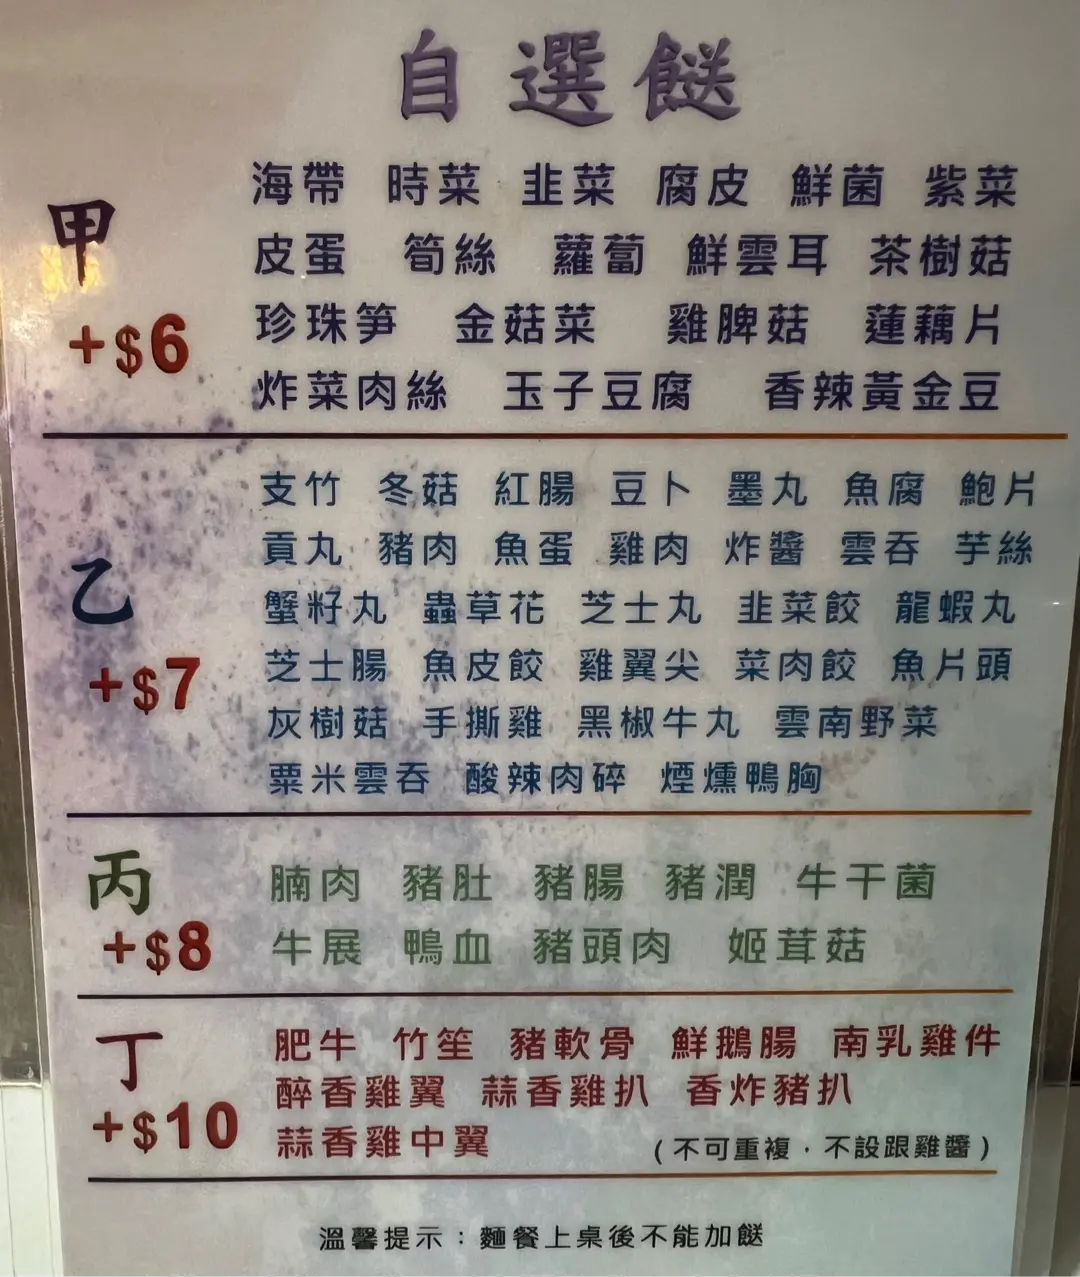 自選餸
甲
+$6
海帶 時菜 韭菜 腐皮 鮮菌 紫菜
皮蛋 筍絲 蘿蔔 鮮雲耳 茶樹菇
珍珠笋 金菇菜 雞脾菇 蓮藕片
炸菜肉絲 玉子豆腐 香辣黃金豆
乙
+$7
支竹 冬菇 紅腸 豆卜 墨丸 魚腐 鮑片
貢丸 豬肉 魚蛋 雞肉 炸醬 雲吞 芋絲
蟹籽丸 蟲草花 芝士丸 韭菜餃 龍蝦丸
芝士腸 魚皮餃 雞翼尖 菜肉餃 魚片頭
灰樹菇 手撕雞 黑椒牛丸 雲南野菜
粟米雲吞 酸辣肉碎 煙燻鴨胸
丙
+$8
腩肉 豬肚 豬腸 豬潤 牛干菌
牛展 鴨血 豬頭肉 姬茸菇
丁
+$10
肥牛 竹笙 豬軟骨 鮮鵝腸 南乳雞件
醉香雞翼 蒜香雞扒 香炸豬扒
蒜香雞中翼 (不可重複，不設跟雞醬)
溫馨提示：麵餐上桌後不能加餸